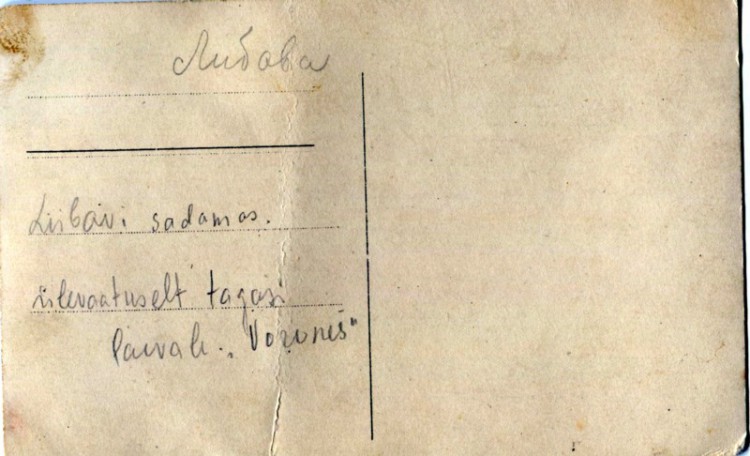 Либава
Liibavi sadamas.
ülevaatuselt tagasi
laevale „Voroneš"